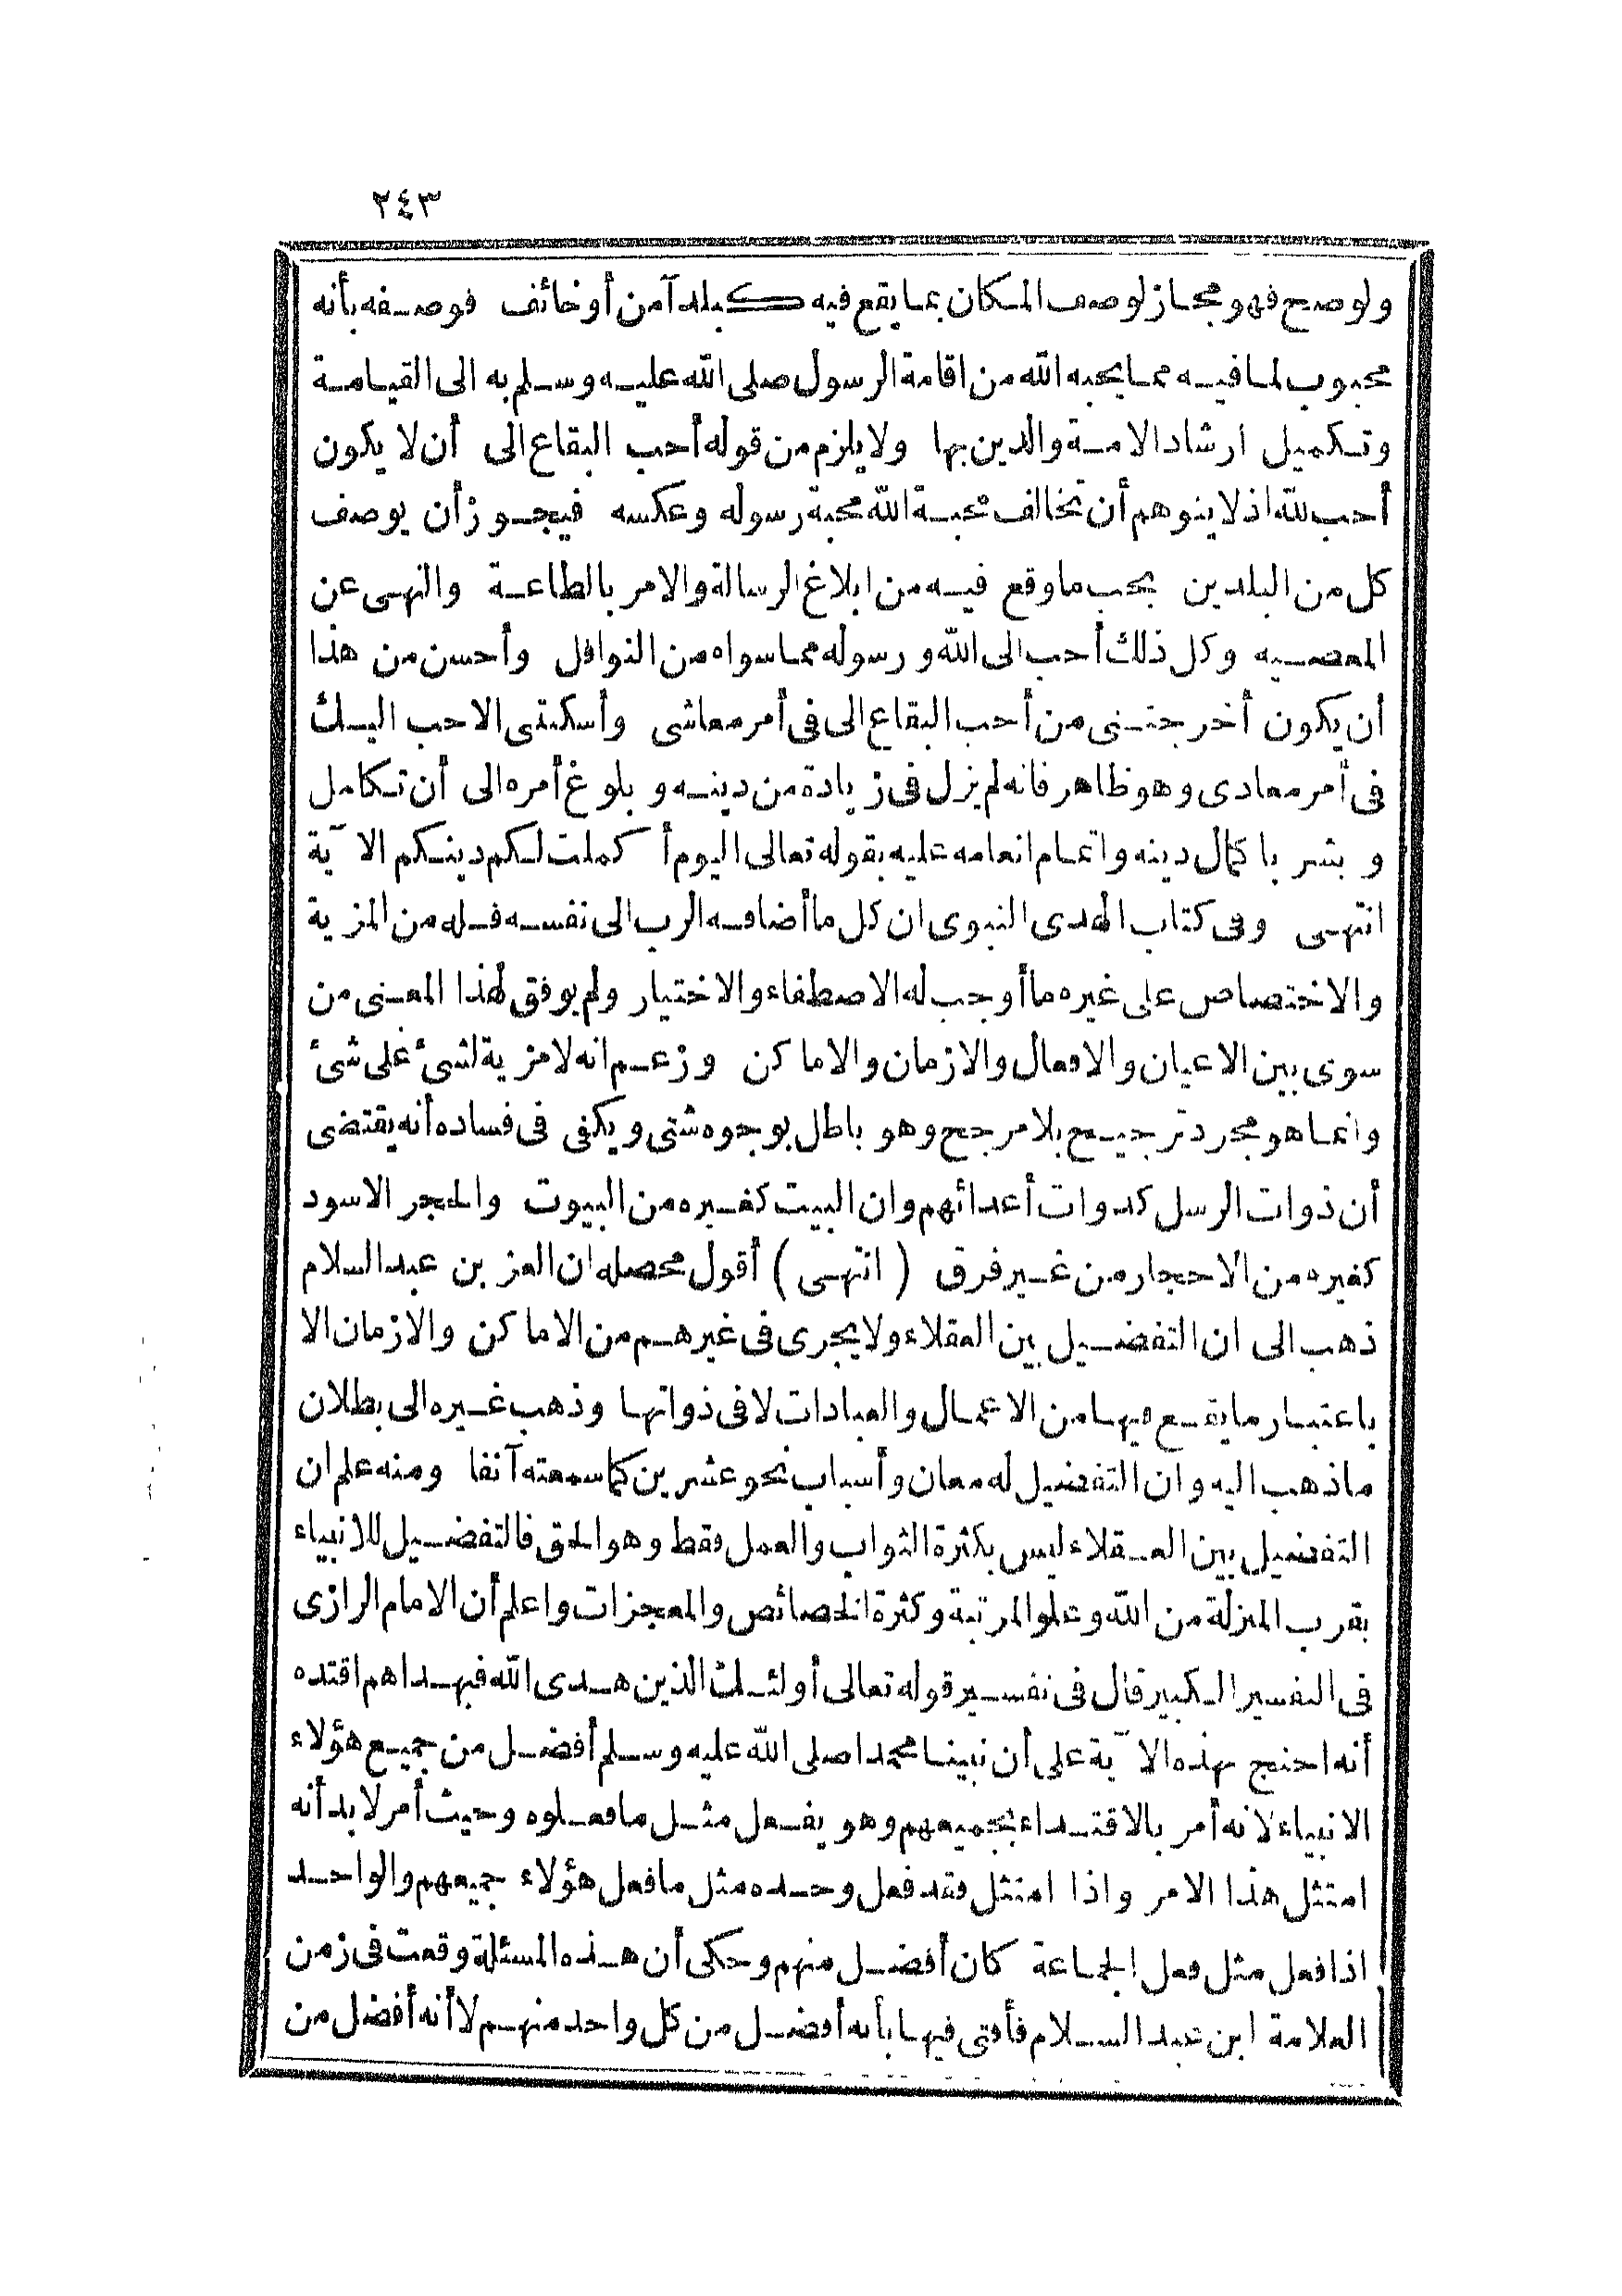 ٢٤٣
ولو صح فهو مجاز لوصف المكان بما يقع فيه كبلد آمن أو خائف فوصفه بأنه
محبوب لما فيه مما يحبه الله من اقامة الرسول صلى الله عليه وسلم به الى القيامة
وتكميل ارشاد الامة والدين بها ولا يلزم من قوله أحب البقاع الى أن لا يكون
أحب لله اذ لا يتوهم أن تخالف محبة الله محبة رسوله وعكسه فيجوز أن يوصف
كل من البلدين بحب ما وقع فيه من ابلاغ الرسالة والامر بالطاعة والنهى عن
المعصيه وكل ذلك أحب الى الله و رسوله مما سواه من النوافل وأحسن من هذا
أن يكون أخرجتنى من أحب البقاع الى فى أمر معاشى وأسكنتى الاحب اليك
فى أمر معادى وهو ظاهر فانه لم يزل فى زيادة من دينه و بلوغ أمره الى أن تكامل
و بشر باكمال دينه واتمام انعامه عليه بقوله تعالى اليوم أكملت لكم دينكم الآية
انتهى وفى كتاب الهدى النبوى ان كل ما أضافه الرب الى نفسه فله من المزية
والاختصاص على غيره ما أوجب له الاصطفاء والاختيار ولم يوفق لهذا المعنى من
سوى بين الاعيان والافعال والازمان والاماكن وزعم انه لا مزية لشئ على شئ
وانما هو مجرد ترجيح بلا مرجح وهو باطل بوجوه شتى ويكفى فى فساده أنه يقتضى
أن ذوات الرسل كذوات أعدائهم وان البيت كغيره من البيوت والحجر الاسود
كغيره من الاحجار من غير فرق ( انتهى ) أقول محصله ان العز بن عبد السلام
ذهب الى ان التفضيل بين العقلاء ولا يجرى فى غيرهم من الاماكن والازمان الا
باعتبار ما يقع فيها من الاعمال والعبادات لا فى ذواتها وذهب غيره الى بطلان
ما ذهب اليه وان التفضيل له معان وأسباب نحو عشرين كما سمعته آنفا ومنه علم ان
التفضيل بين العقلاء ليس بكثرة الثواب والعمل فقط وهو الحق فالتفضيل للانبياء
بقرب المنزلة من الله وعلو المرتبة وكثرة الخصائص والمعجزات واعلم أن الامام الرازى
فى التفسير الكبير قال فى تفسير قوله تعالى أولئك الذين هدى الله فبهداهم اقتده
أنه احتج بهذه الآية على أن نبينا محمدا صلى الله عليه وسلم أفضل من جميع هؤلاء
الانبياء لانه أمر بالاقتداء بجميعهم وهو يفعل مثل ما فعلوه وحيث أمر لا بد أنه
امتثل هذا الامر واذا امتثل فقد فعل وحده مثل ما فعل هؤلاء جميعهم والواحد
اذا فعل مثل فعل الجماعة كان أفضل منهم وحكى أن هذه المسئلة وقعت فى زمن
العلامة ابن عبد السلام فأفتى فيها بأنه أفضل من كل واحد منهم لا أنه أفضل من